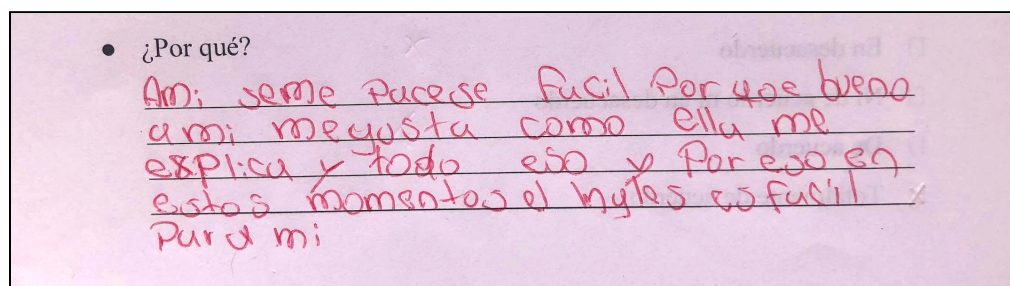 • ¿Por qué?
Ami seme Pacese facil Por que bueno
a mi megusta como ella me
explica y todo eso y Por eso en
estos momentos el Ingles es facil
Para mi